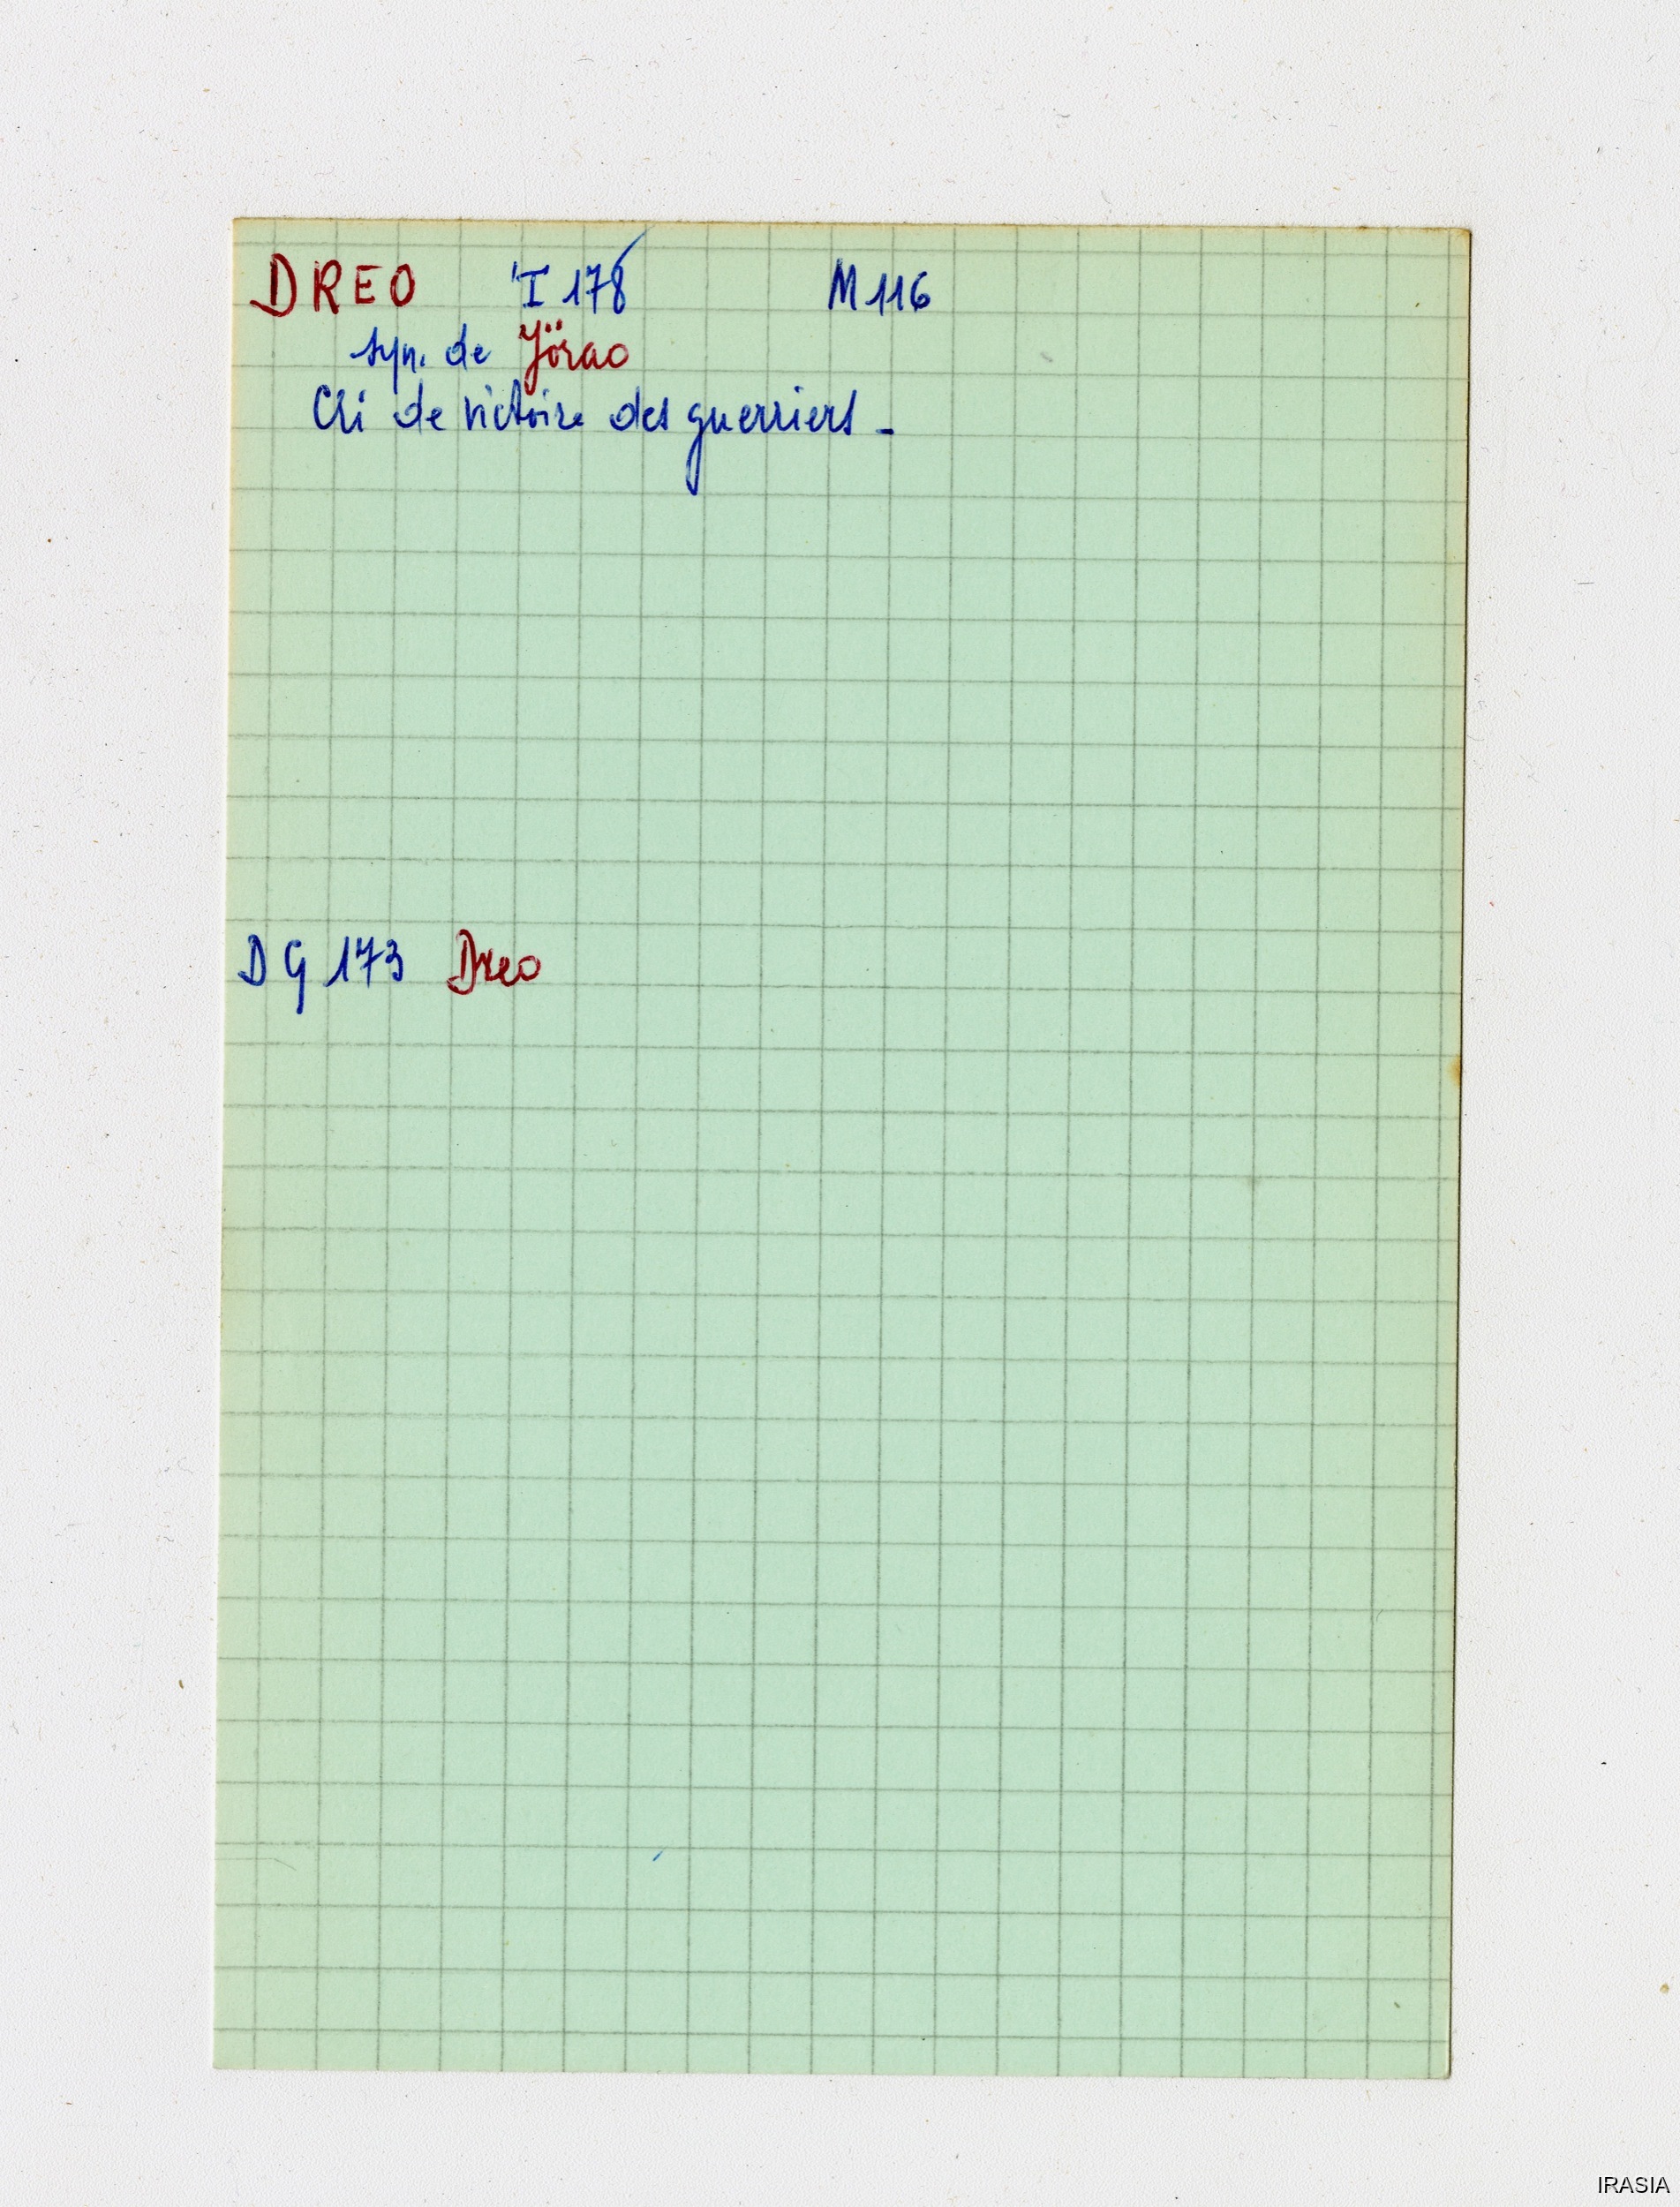 DREO 'I 178 M 116
syn. de Jörao
Cri de victoire des guerriers -
DG 173 Dreo
IRASIA